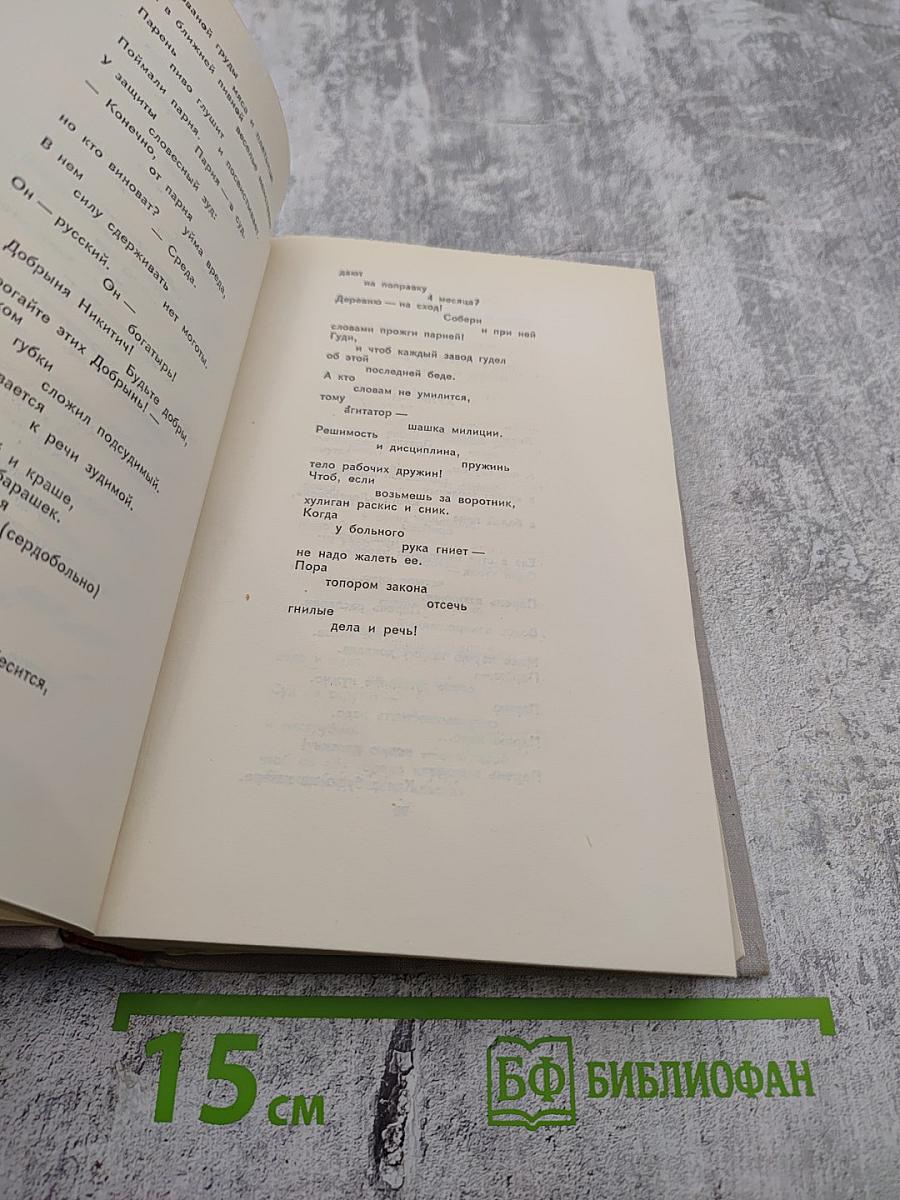 ованой груды мяса и
в ближней пивной веселье
Парень пиво глушит и посвистывает.
Поймали парня. Парня — в суд.
У защиты словесный зуд:
— Конечно, от парня уйма вреда,
но кто виноват? — Среда.
В нем силу сдерживать нет моготы.
Он — русский. Он — богатырь!
Добрыня Никитич! Будьте добры,
рогайте этих Добрынь! —
ком
губки сложил подсудимый.
вается к речи зудимой.
и краше,
барашек.
я
(сердобольно)
есится,
дают
на поправку
4 месяца?
Деревню — на сход!
Собери
и при ней
словами прожги парней!
Гуди,
и чтоб каждый завод гудел
об этой
последней беде.
А кто
словам не умилится,
тому
агитатор —
шашка милиции.
Решимость
и дисциплина,
пружинь
тело рабочих дружин!
Чтоб, если
возьмешь за воротник,
хулиган раскис и сник.
Когда
у больного
рука гниет —
не надо жалеть ее.
Пора
топором закона
отсечь
гнилые
дела и речь!
15 см
БФ БИБЛИОФАН